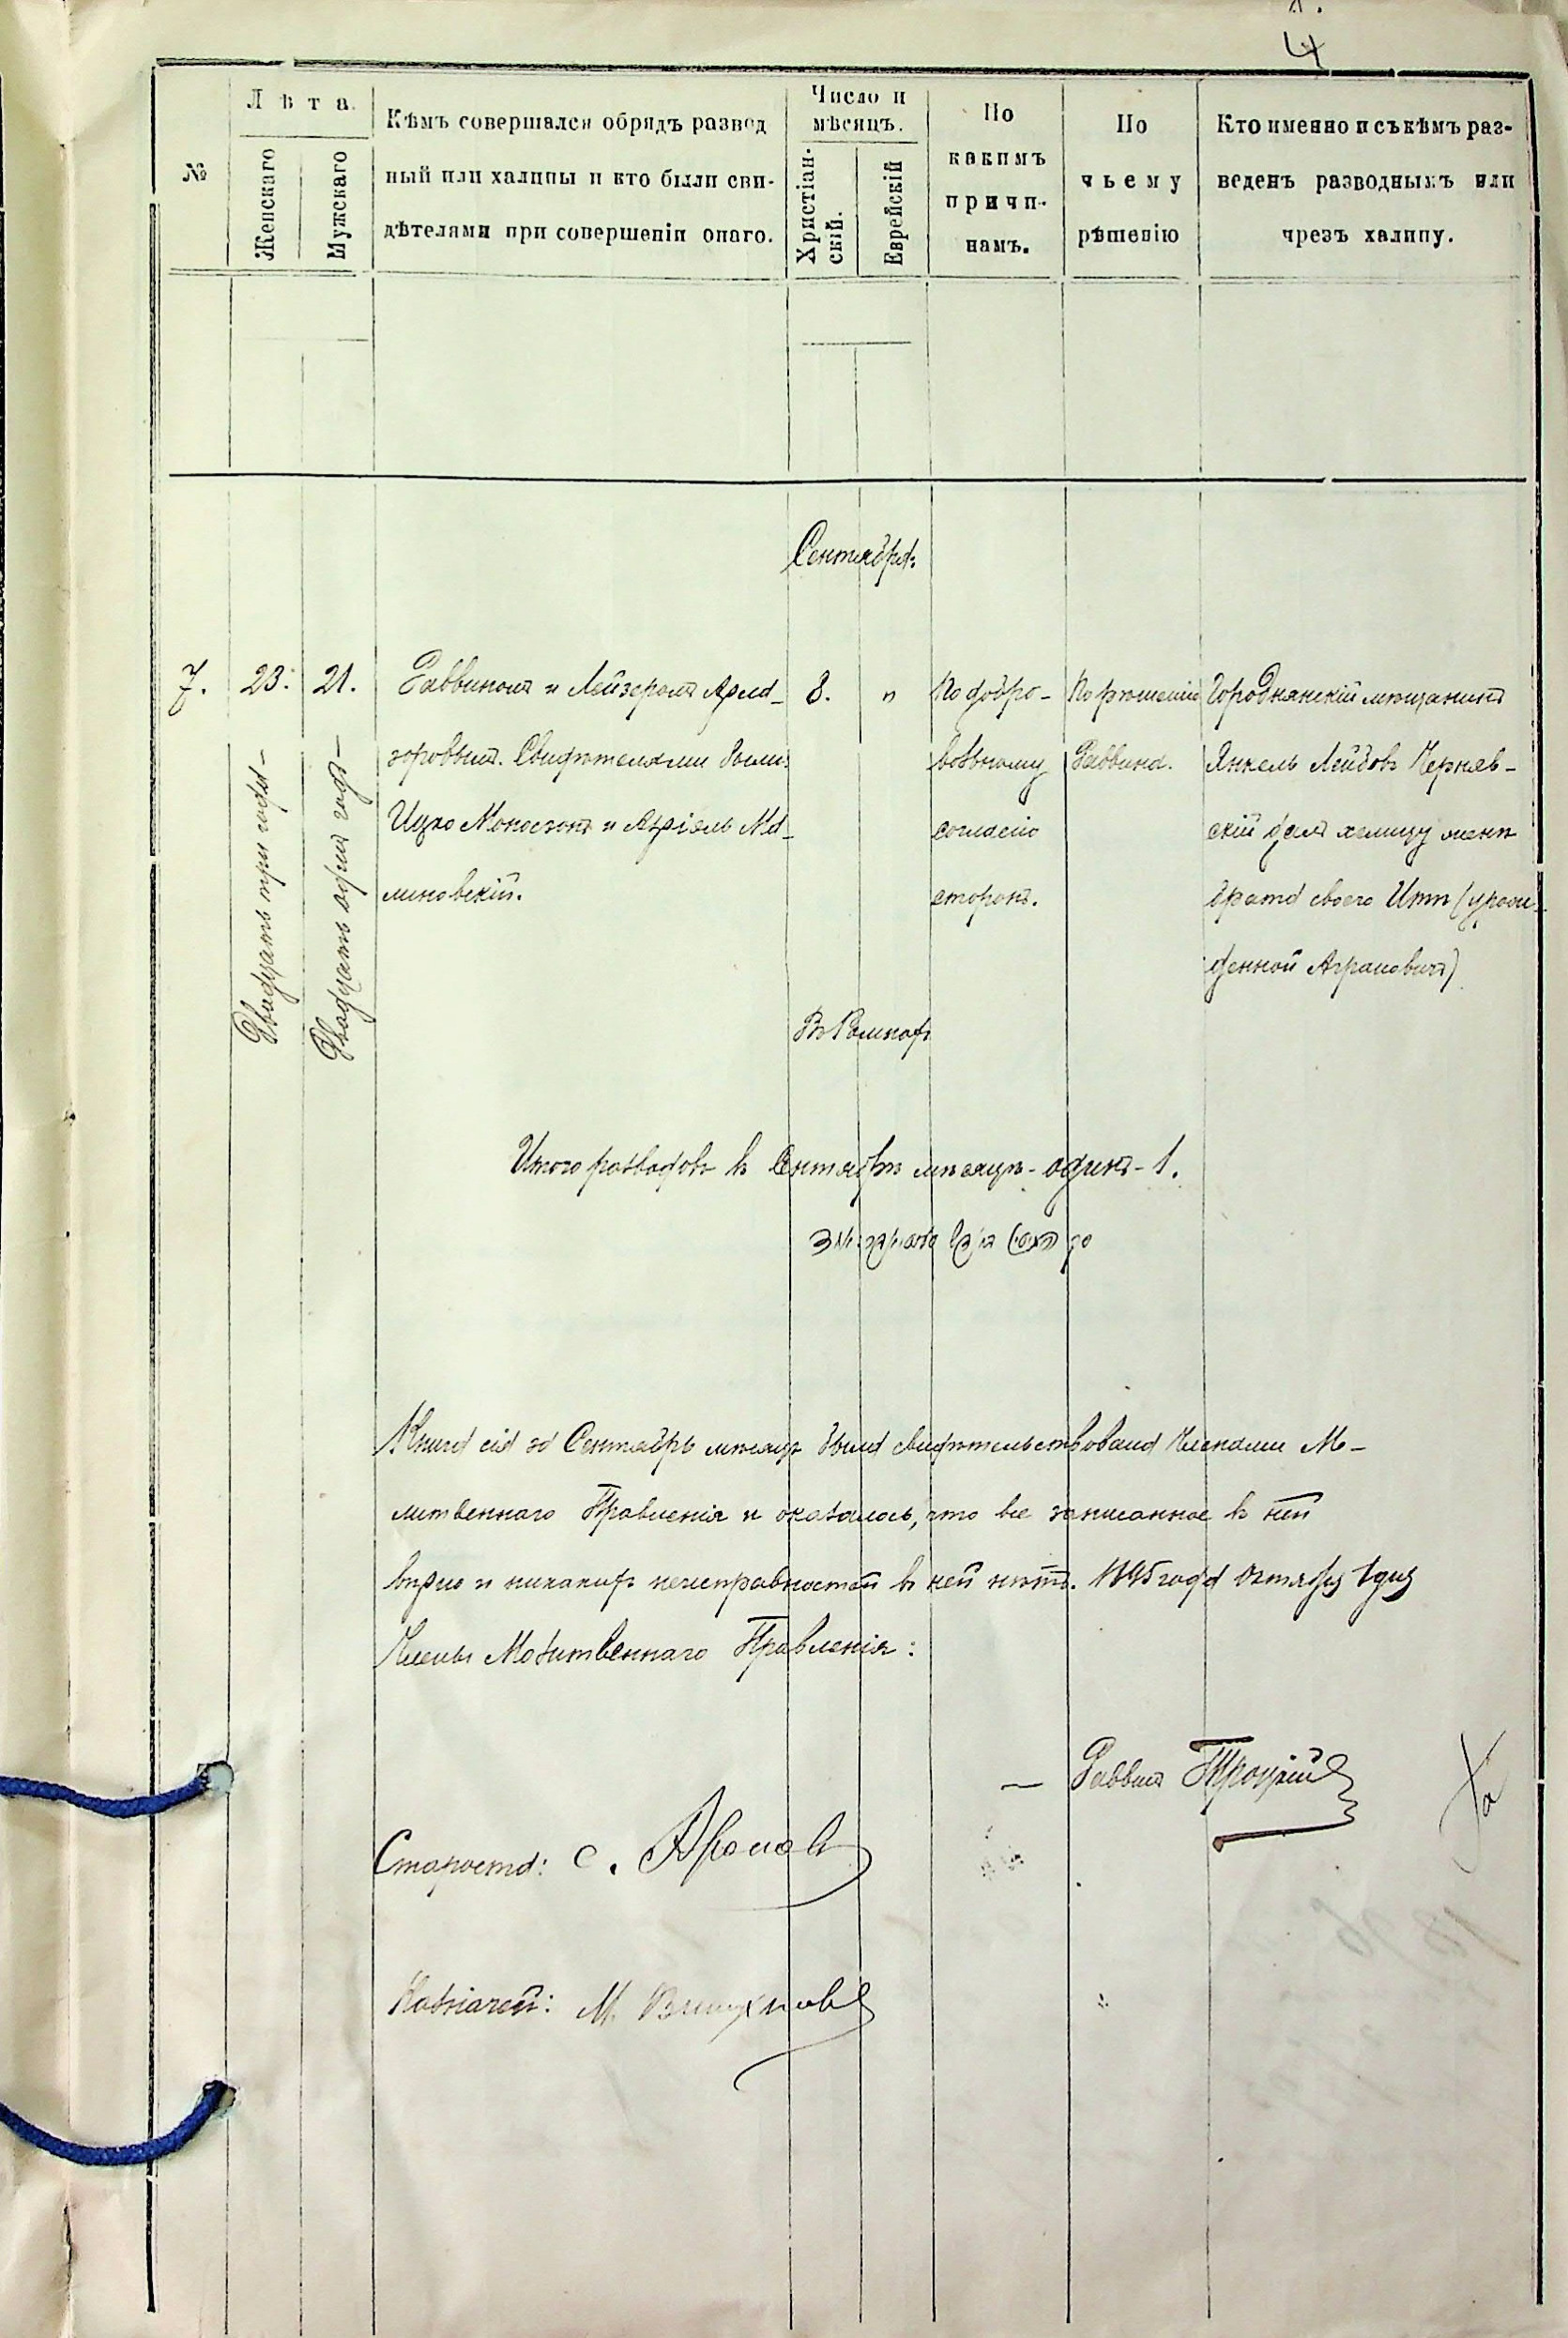 4
№
Лѣта.
Женскаго
Мужскаго
Кѣмъ совершался обрядъ развод
ный или халицы и кто были сви-
дѣтелями при совершеніи онаго.
Число и
мѣсяцъ.
Христіан-
скій.
Еврейскій
По
какимъ
причи-
намъ.
По
чьему
рѣшенію
Кто именно и съ кѣмъ раз-
веденъ разводнымъ или
чрезъ халицу.
Сентябрь
7.
23.
Двадцать три года
21.
Двадцать одинъ годъ
Раввиномъ и Лейзеромъ
Свидѣтелями были:
Ицко и Азріель Ма-
линовскій.
8.
"
По добро-
вольному
согласію
сторонъ.
По рѣшенію
Раввина.
Городнянскій мѣщанинъ
Янкель Лейбовъ Черняв-
скій далъ халицу женѣ
брата своего Итѣ (урож-
денной Аграновичъ)
Въ Ромнахъ
Итого разводовъ въ Сентябрѣ мѣсяцѣ - одинъ - 1.
Книга сія за Сентябрь мѣсяцъ была свидѣтельствована Членами Мо-
литвеннаго Правленія и оказалось, что все записанное въ ней
вѣрно и никакихъ неисправностей въ ней нѣтъ. 1895 года Октября 1 дня
Члены Молитвеннаго Правленія:
Раввинъ Троцкій
Староста: С.
Казначей: М.